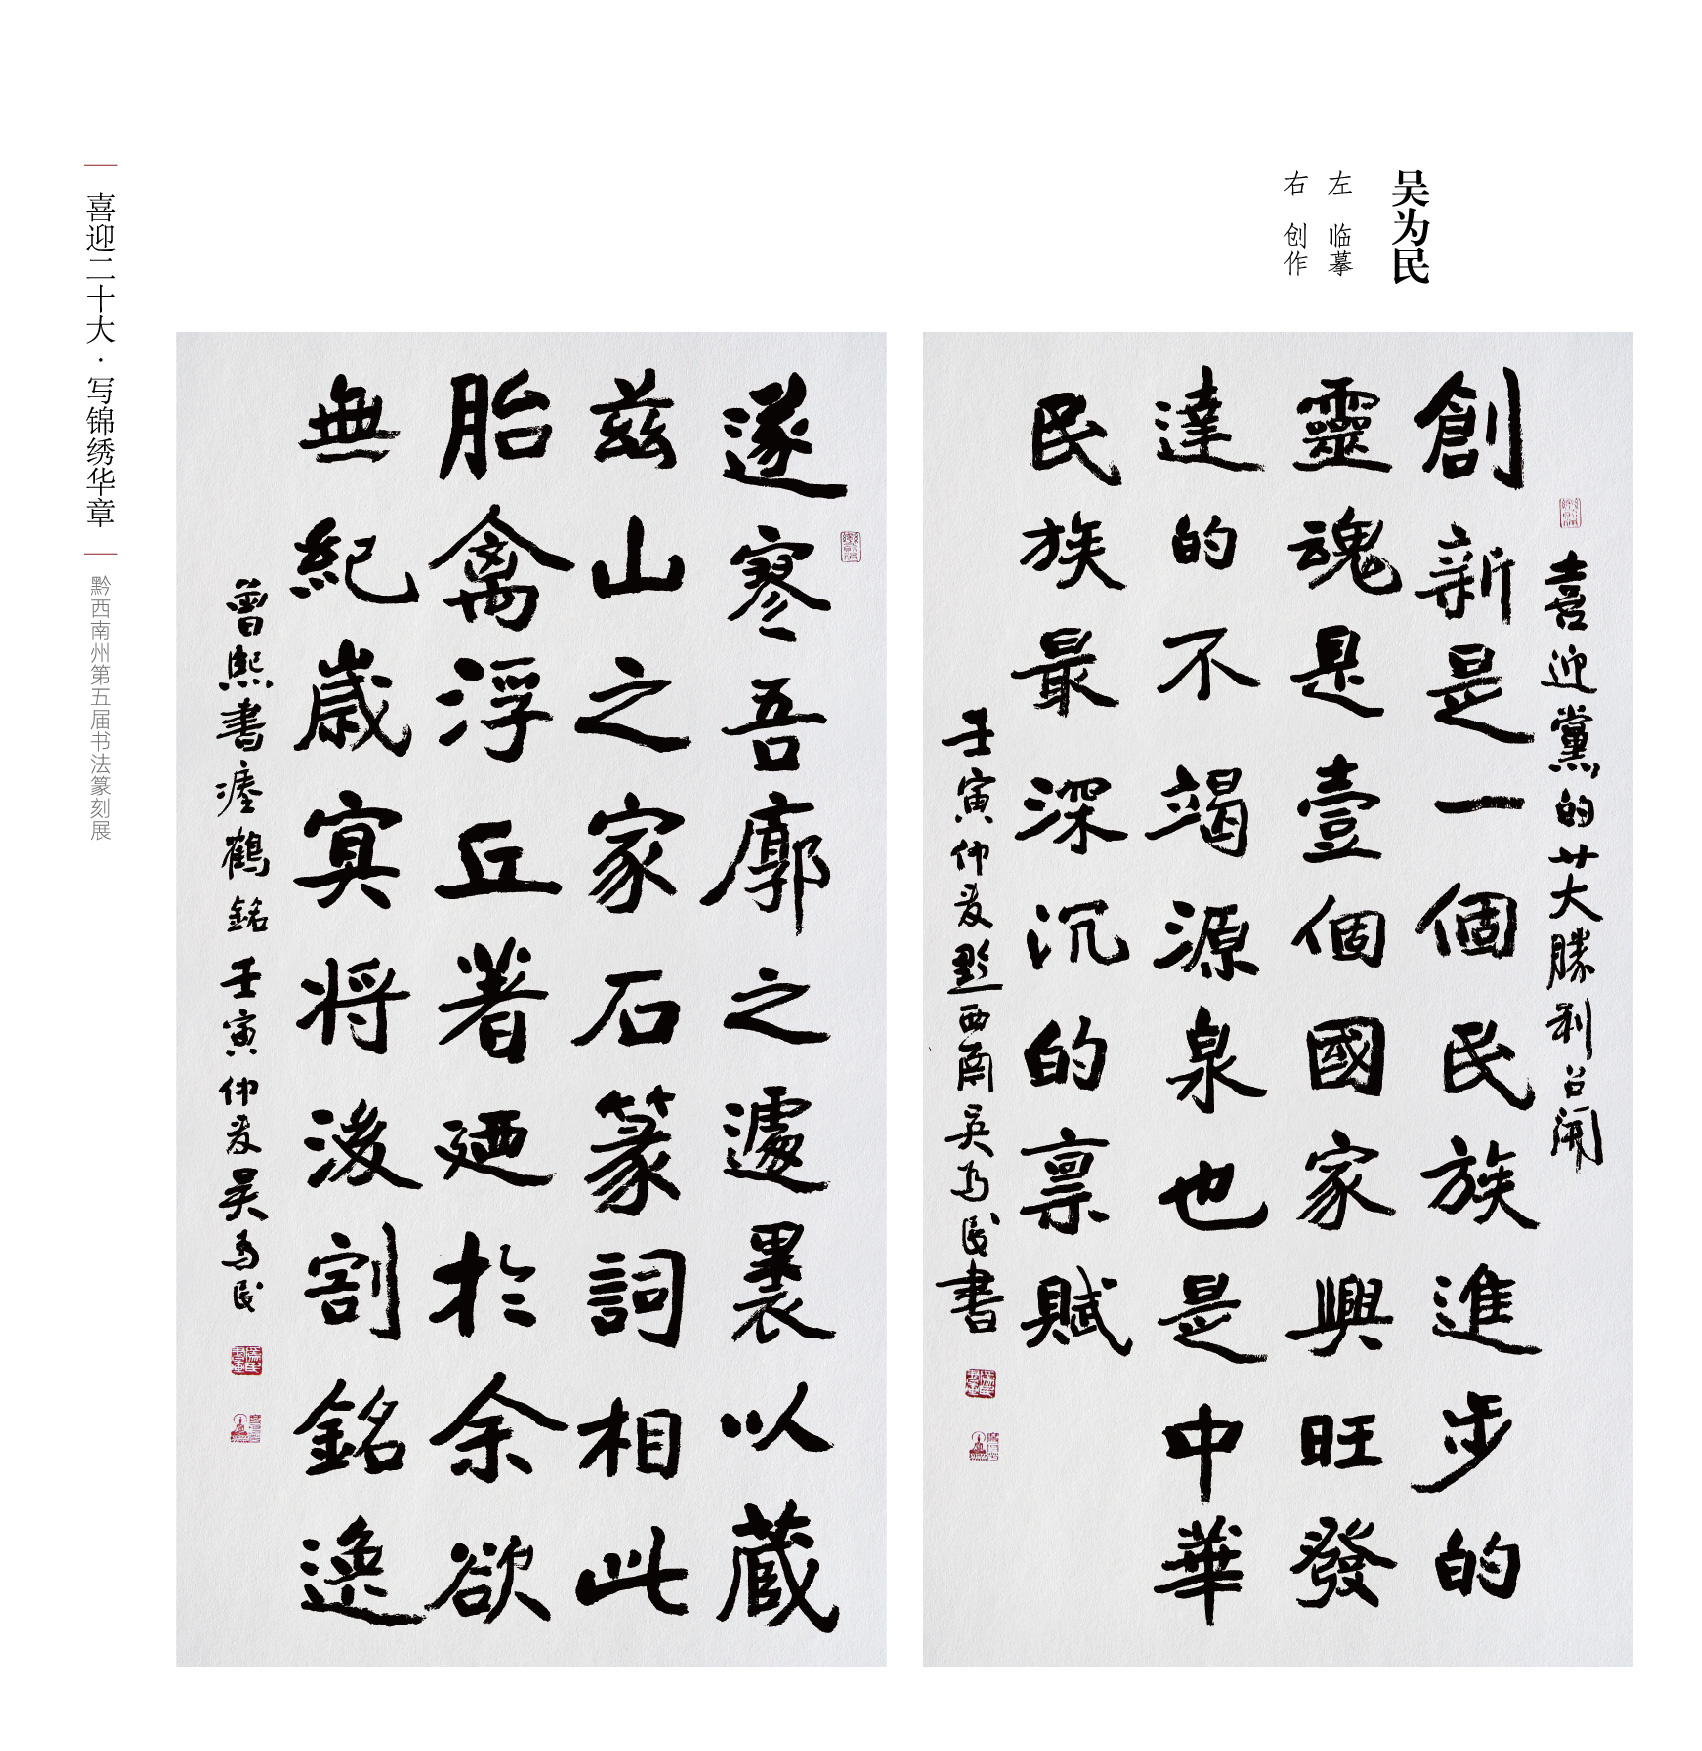 吴为民
左 临摹
右 创作
喜迎黨的廿大勝利召開
創新是一個民族進步的
靈魂是壹個國家興旺發
達的不竭源泉也是中華
民族最深沉的禀賦
壬寅仲夏黔西南吴为民書
遂寥吾廓之遽裹以蔵
兹山之家石篆詞相此
胎禽浮丘著廼於余欲
無紀歳寘将浚割銘逸
曾熙書瘗鶴銘壬寅仲夏吴为民
喜迎二十大·写锦绣华章
黔西南州第五届书法篆刻展